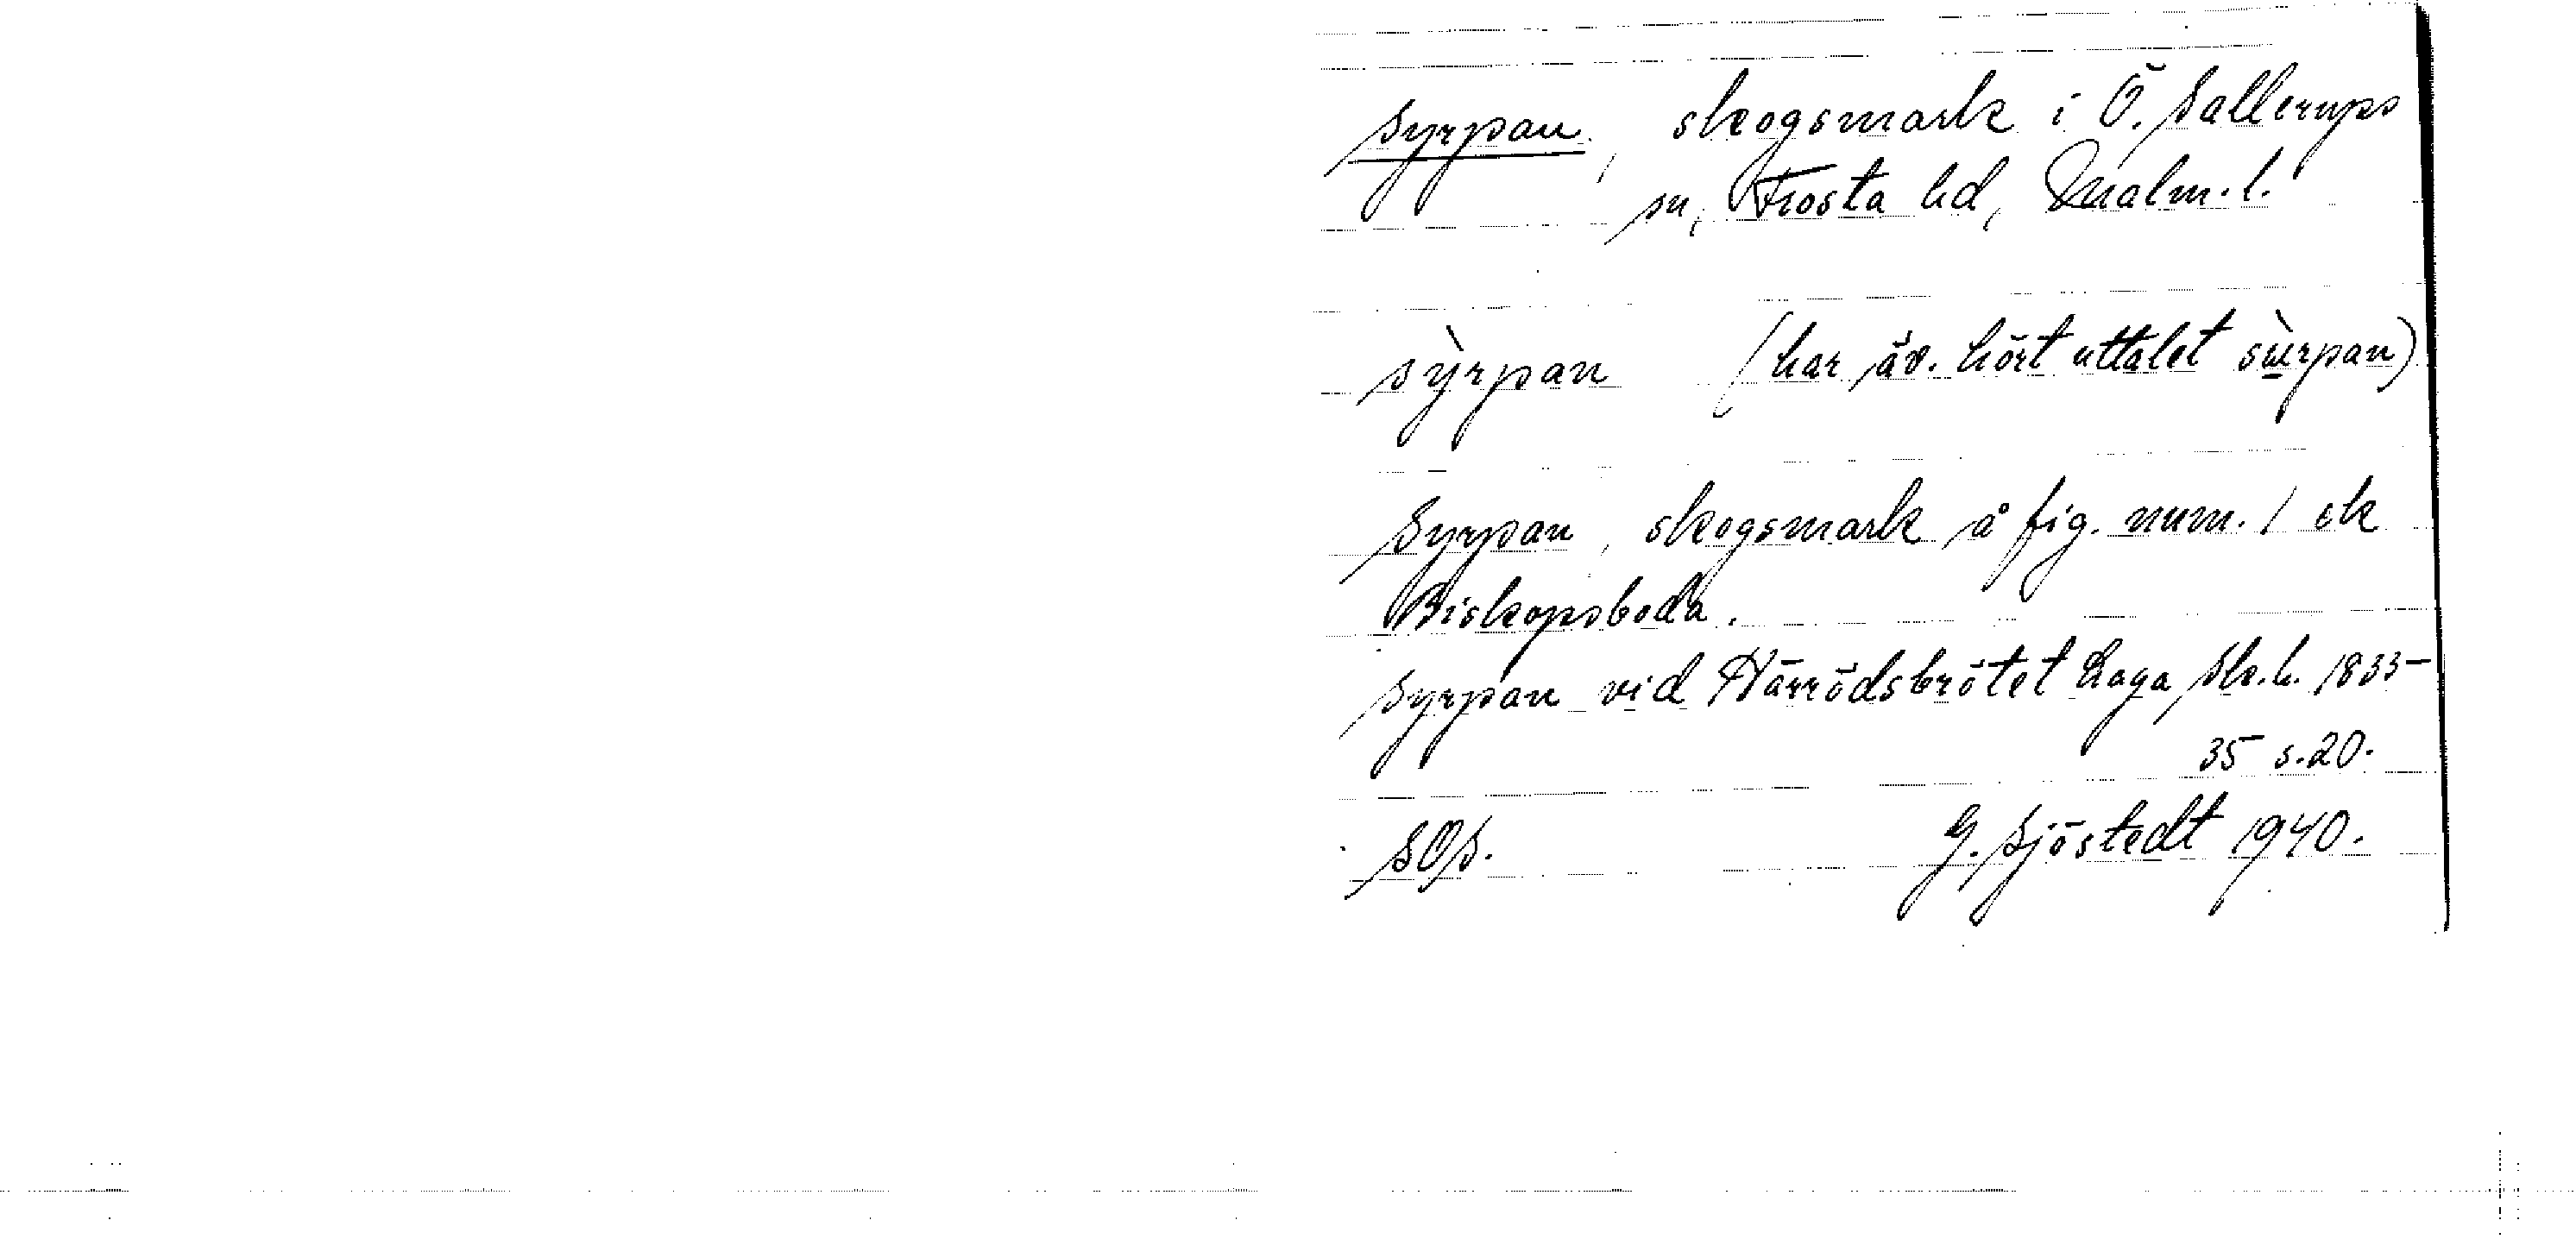 Syrpan, skogsmark i Ö. Sallerups
sn, Frosta hd, Malm. l.
sỳrpan (har äv. hört uttalet sùrpan)
Syrpan, skogsmark å fig. num. 1 ek
Biskopsboda.
Syrpan vid Härrödsbrötet Laga Sk.h. 1833-
35 s.20.
SOS. G. Sjöstedt 1940.